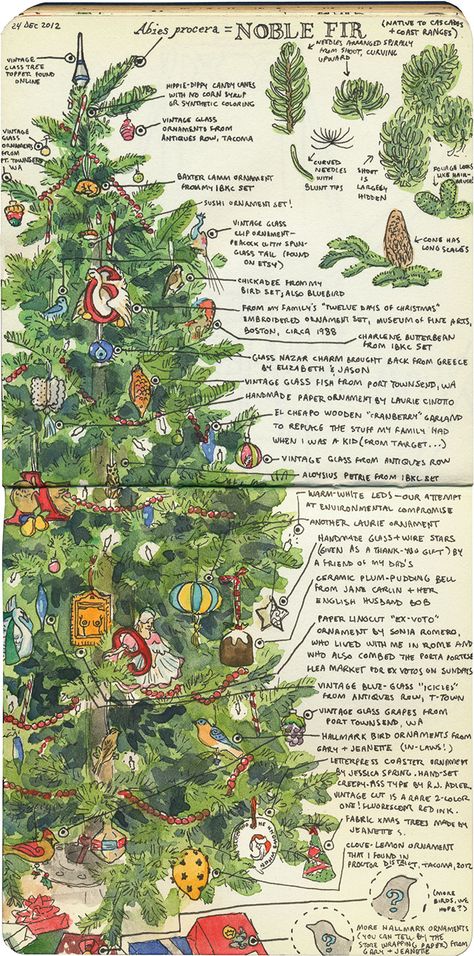 24 DEC 2012
Abies procera = NOBLE FIR
(NATIVE TO CASCADES
+ COAST RANGES)
NEEDLES ARRANGED SPIRALLY
FROM SHOOT, CURVING
UPWARD
VINTAGE
GLASS TREE
TOPPER FOUND
ONLINE
HIPPIE-DIPPY CANDY CANES
WITH NO CORN SYRUP
OR SYNTHETIC COLORING
VINTAGE GLASS
ORNAMENTS FROM
ANTIQUES ROW, TACOMA
VINTAGE
GLASS
ORNAMENTS
FROM
PT. TOWNSEND,
WA
CURVED
NEEDLES
WITH
BLUNT TIPS
SHOOT
IS
LARGELY
HIDDEN
FOLIAGE LOOKS
LIKE HAIR-
BRUSH!
BAXTER LAMM ORNAMENT
FROM MY IBKC SET
SUSHI ORNAMENT SET!
VINTAGE GLASS
CLIP ORNAMENT—
PEACOCK WITH SPUN-
GLASS TAIL (FOUND
ON ETSY)
CONE HAS
LONG SCALES
CHICKADEE FROM MY
BIRD SET; ALSO BLUEBIRD
FROM MY FAMILY'S "TWELVE DAYS OF CHRISTMAS"
EMBROIDERED ORNAMENT SET, MUSEUM OF FINE ARTS,
BOSTON, CIRCA 1988
CHARLENE BUTTERBEAN
FROM IBKC SET
GLASS NAZAR CHARM BROUGHT BACK FROM GREECE
BY ELIZABETH & JASON
VINTAGE GLASS FISH FROM PORT TOWNSEND, WA
HANDMADE PAPER ORNAMENT BY LAURIE CINOTTO
EL CHEAPO WOODEN "CRANBERRY" GARLAND
TO REPLACE THE STUFF MY FAMILY HAD
WHEN I WAS A KID (FROM TARGET...)
VINTAGE GLASS FROM ANTIQUES ROW
ALOYSIUS PETRIE FROM IBKC SET
WARM-WHITE LEDS—OUR ATTEMPT
AT ENVIRONMENTAL COMPROMISE
ANOTHER LAURIE ORNAMENT
HANDMADE GLASS + WIRE STARS
(GIVEN AS A THANK-YOU GIFT) BY
A FRIEND OF MY DAD'S
CERAMIC PLUM-PUDDING BELL
FROM JANE CARLIN + HER
ENGLISH HUSBAND BOB
PAPER LINOCUT "EX-VOTO"
ORNAMENT BY SONIA ROMERO,
WHO LIVED WITH ME IN ROME AND
WHO ALSO COMBED THE PORTA PORTESE
FLEA MARKET FOR EX VOTOS ON SUNDAYS
VINTAGE BLUE-GLASS "ICICLES"
FROM ANTIQUES ROW, T-TOWN
VINTAGE GLASS GRAPES FROM
PORT TOWNSEND, WA
HALLMARK BIRD ORNAMENTS FROM
GARY + JEANETTE (IN-LAWS!)
LETTERPRESS COASTER ORNAMENT
BY JESSICA SPRING. HAND-SET
CREEPY-ASS TYPE BY R.J. ADLER.
VINTAGE CUT IS A RARE 2-COLOR
ONE! FLUORESCENT RED INK.
FABRIC XMAS TREES MADE BY
JEANETTE S.
CLOVE-LEMON ORNAMENT
THAT I FOUND IN
PROCTOR DISTRICT, TACOMA, 2012
(MORE
BIRDS, WE
HOPE?)
?
?
MORE HALLMARK ORNAMENTS
(YOU CAN TELL BY THE
STORE WRAPPING PAPER) FROM
GARY + JEANETTE